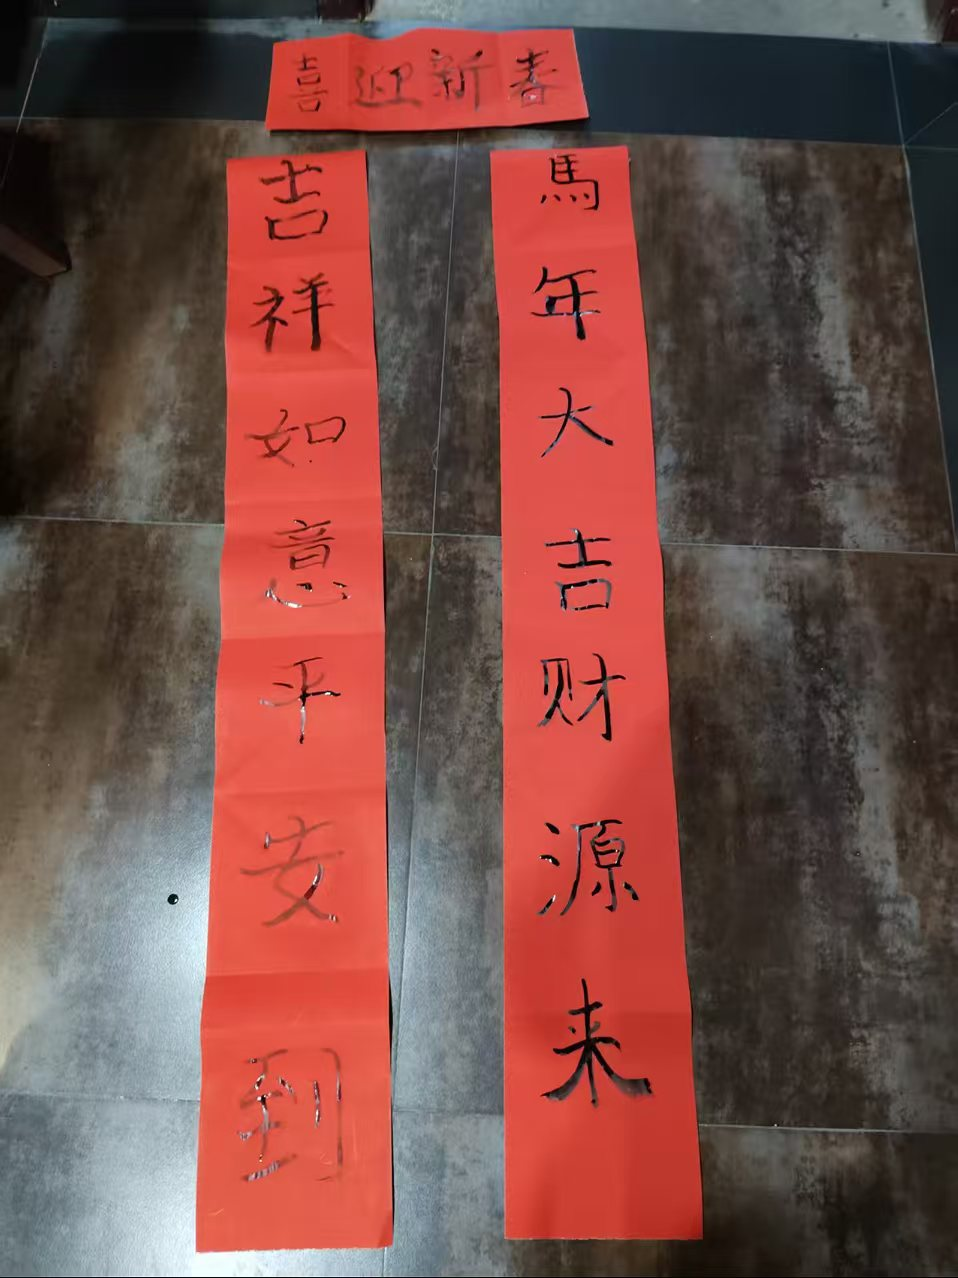 喜迎新春
馬年大吉财源来
吉祥如意平安到